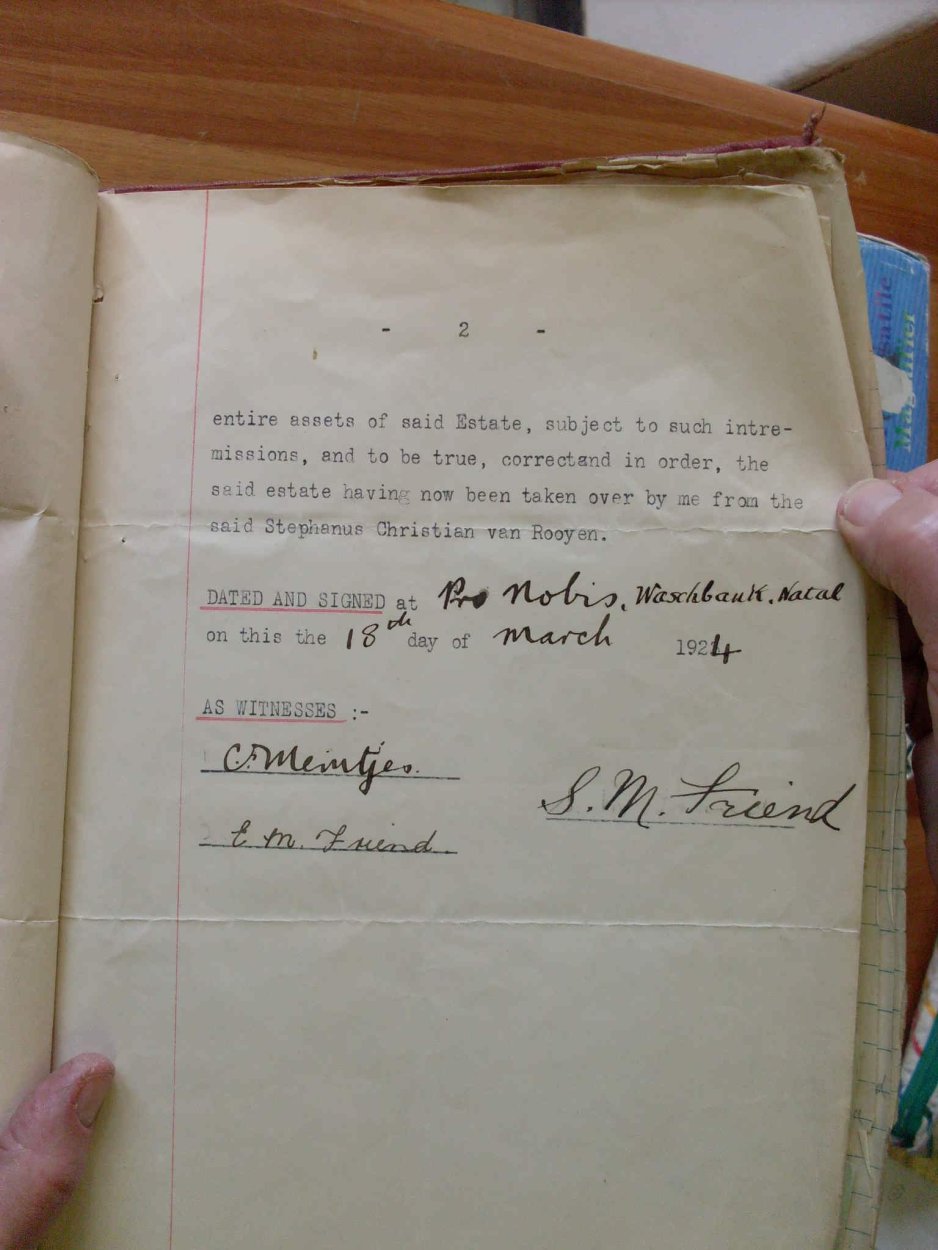 - 2 -
entire assets of said Estate, subject to such intre-
missions, and to be true, correctand in order, the
said estate having now been taken over by me from the
said Stephanus Christian van Rooyen.
DATED AND SIGNED at Pro Nobis, Waschbank. Natal
on this the 18th day of March 1924
AS WITNESSES :-
C.F. Meintjes.
S. M. Friend
E. M. Friend